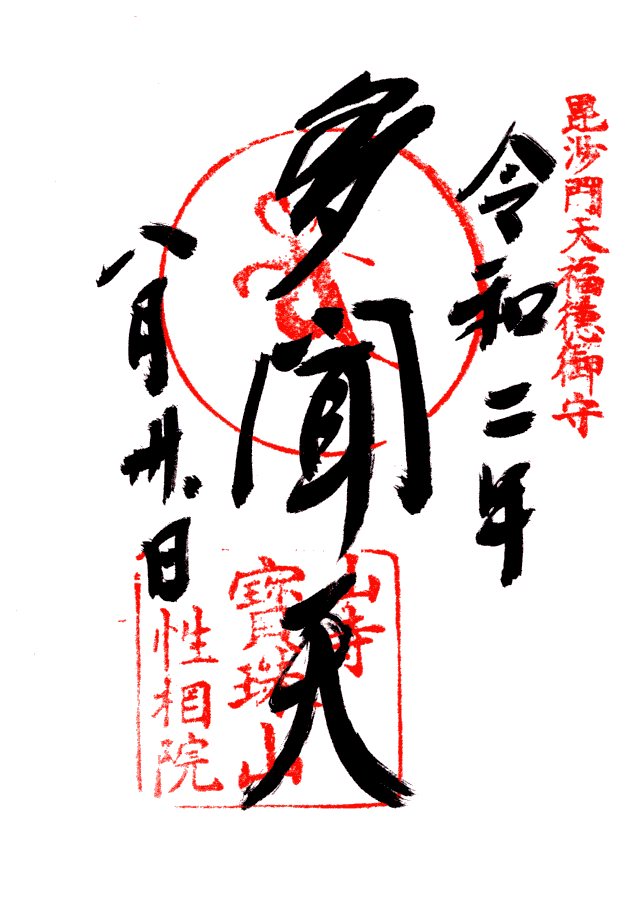 毘沙門天福徳御守
令和二年
多聞天
八月卅日
山寺
寳珠山
性相院